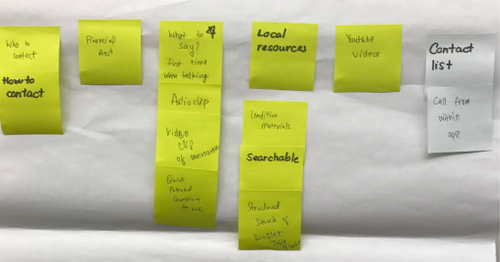 Who to
contact
How to
contact
Financial
Asst
What to
say?
first time
when talking
Audio clip
Video
clip
of conversation
Quick
Potential
Questions
to ask
Local
resources
Condition
Materials
Searchable
Structured
Search of
Booklet
Youtube
Videos
Contact
list
Call from
within
app